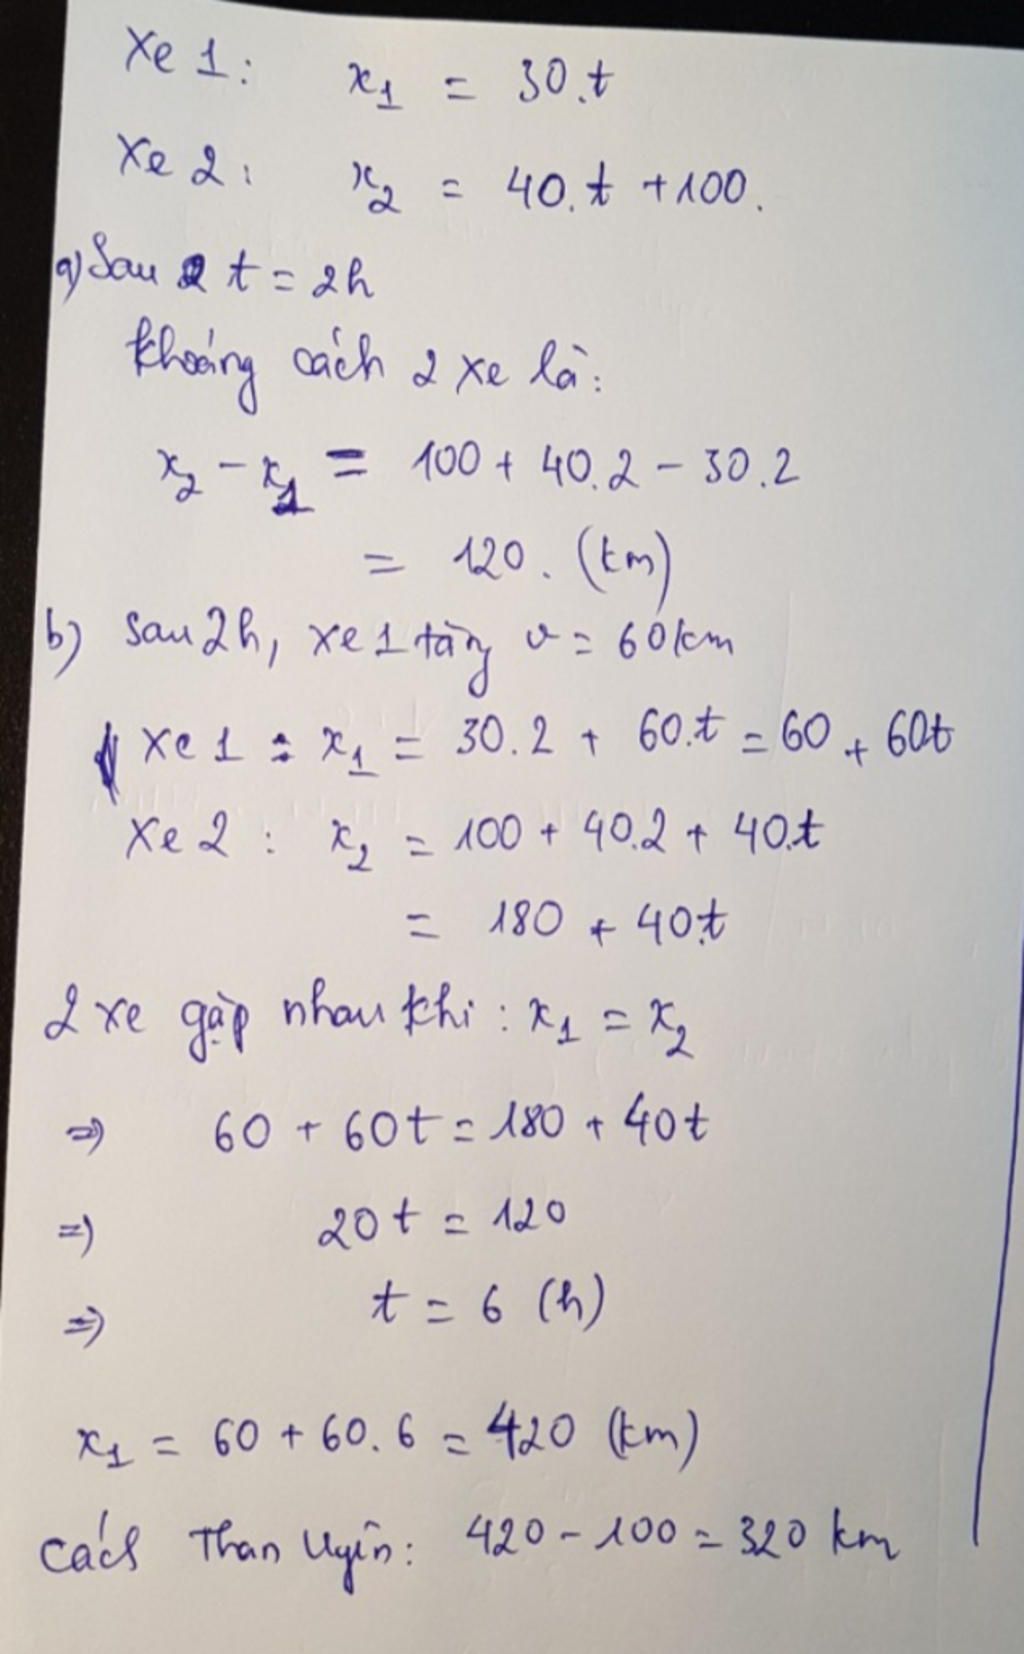 Xe 1: x₁ = 30.t
Xe 2: x₂ = 40.t + 100.
a) Sau t = 2h
Khoảng cách 2 xe là:
x₂ - x₁ = 100 + 40.2 - 30.2
= 120. (km)
b) Sau 2h, xe 1 tăng v = 60km
Xe 1 : x₁ = 30.2 + 60.t = 60 + 60t
Xe 2 : x₂ = 100 + 40.2 + 40.t
= 180 + 40.t
2 xe gặp nhau khi : x₁ = x₂
⇒ 60 + 60t = 180 + 40t
⇒ 20t = 120
⇒ t = 6 (h)
x₁ = 60 + 60.6 = 420 (km)
Cách Than Uyên: 420 - 100 = 320 km